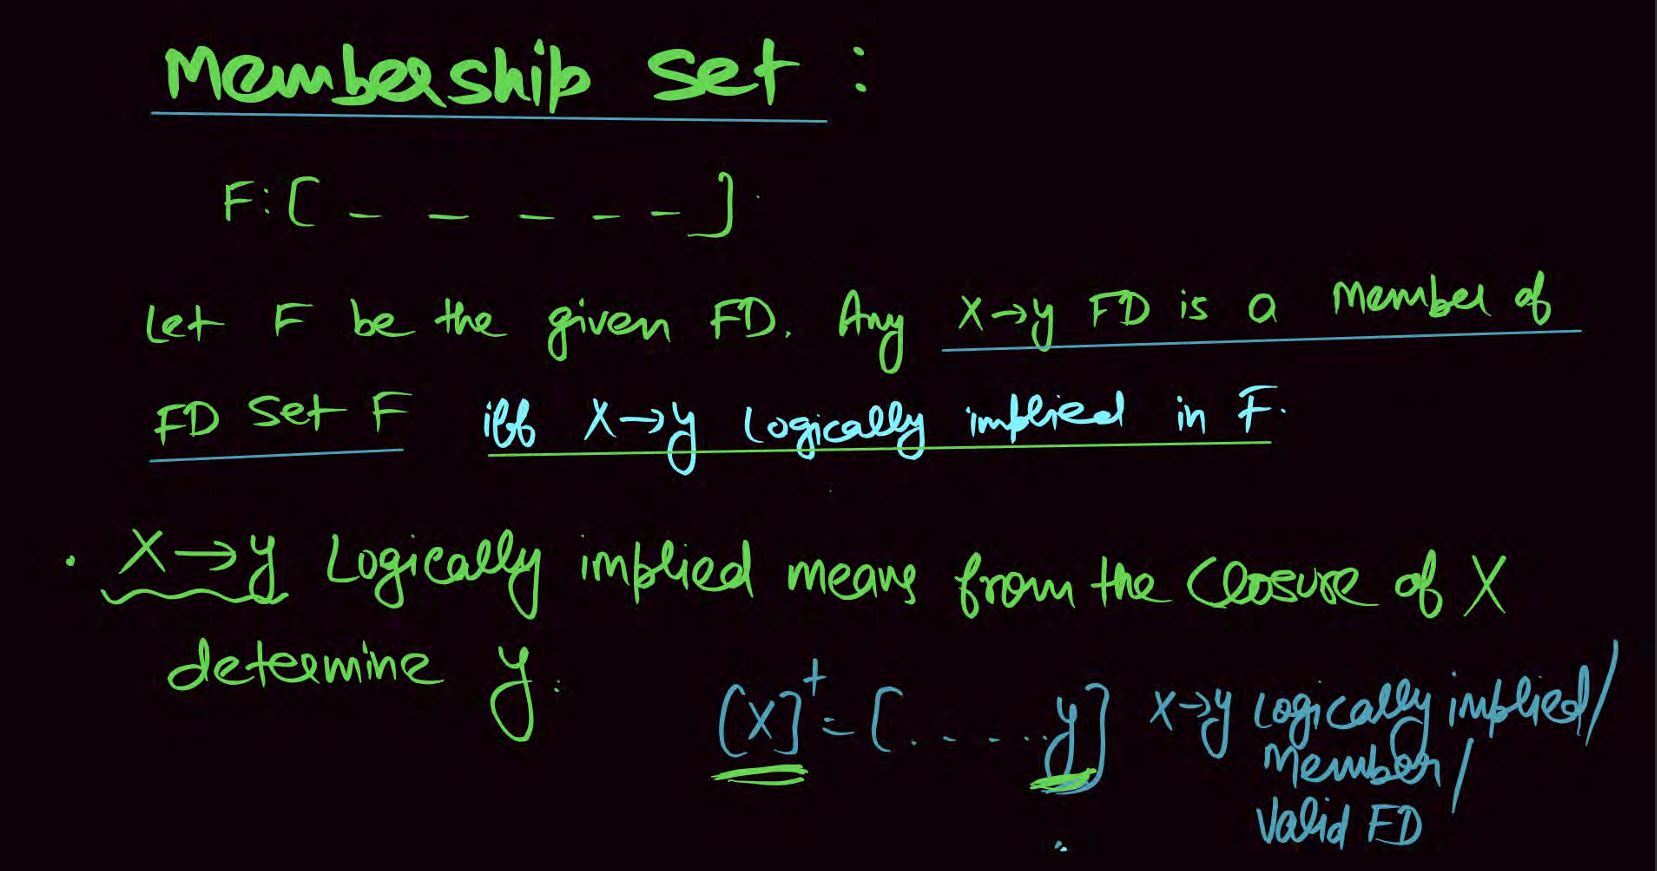 Membership Set :
F: [ _ _ _ _ _ ]
Let F be the given FD. Any X→y FD is a Member of
FD Set F iff X→y Logically implied in F.
• X→y Logically implied means from the Closure of X
determine y.
[X]⁺ = [. . . . . . y] X→y Logically implied/
Member/
Valid FD